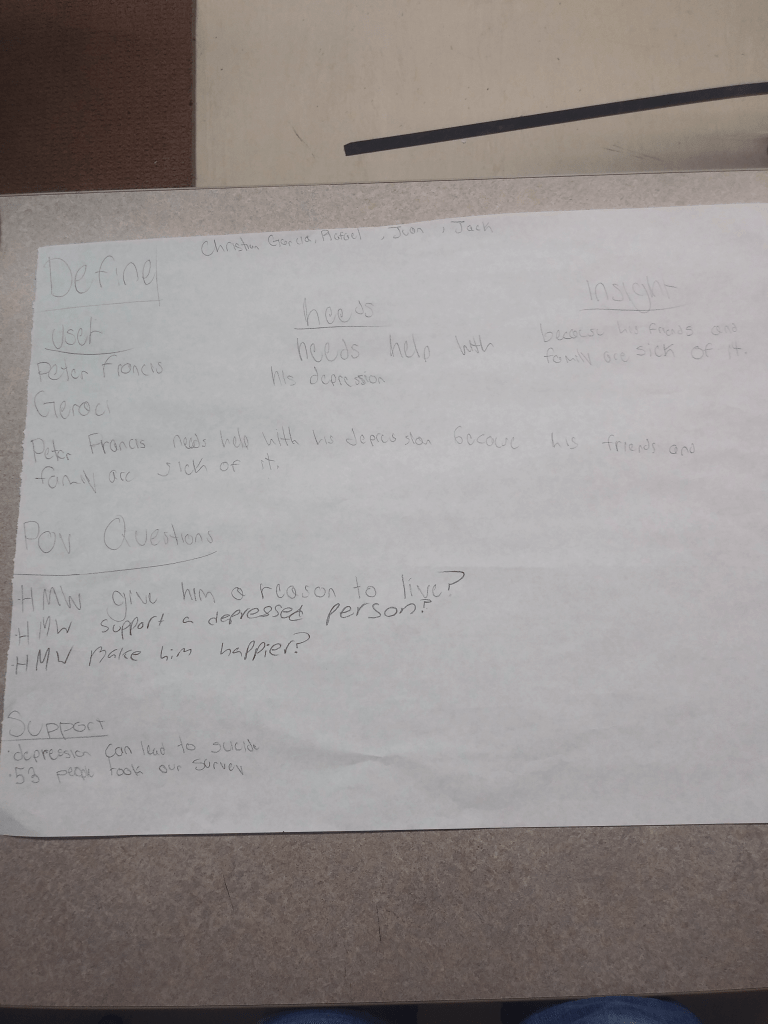 Christian Garcia, Rafael, Juan, Jack
Define
User
needs
Insight
Peter Francis
Geraci
needs help with
his depression
because his friends and
family are sick of it.
Peter Francis needs help with his depression because his friends and
family are sick of it.
POV Questions
HMW give him a reason to live?
HMW support a depressed person?
HMW make him happier?
Support
·depression can lead to suicide
·53 people took our survey